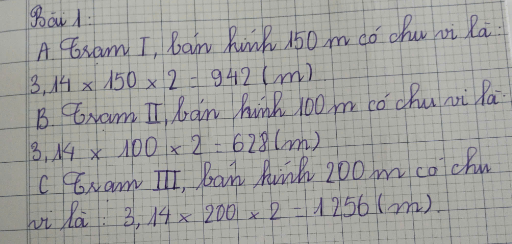 Bài 1:
A Trạm I, bán kính 150 m có chu vi là:
3,14 × 150 × 2 = 942 (m)
B Trạm II, bán kính 100 m có chu vi là:
3,14 × 100 × 2 = 628 (m)
C Trạm III, bán kính 200 m có chu
vi là : 3,14 × 200 × 2 = 1256 (m).